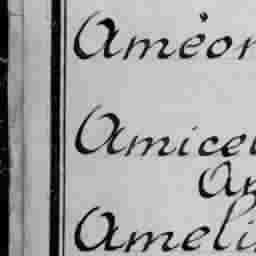 Améor
Amice
An
Ameli